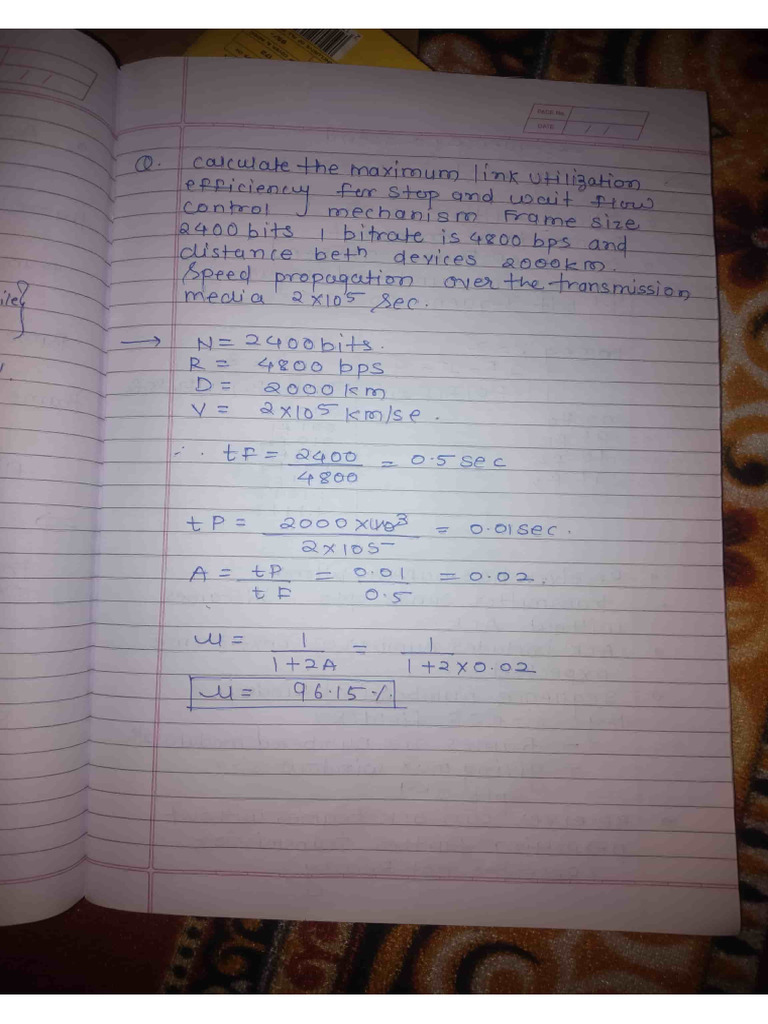 PAGE No.
DATE / /
Q. Calculate the maximum link utilization
efficiency for stop and wait flow
control mechanism Frame size
2400 bits , bitrate is 4800 bps and
distance betn devices 2000km.
Speed propagation over the transmission
media 2×10⁵ sec.
→ N= 2400 bits.
R= 4800 bps
D= 2000 km
V= 2×10⁵ km/se.
∴ tF = 2400/4800 = 0.5 sec
tP = 2000×10³/2×10⁵ = 0.01 sec.
A = tP/tF = 0.01/0.5 = 0.02.
u = 1/1+2A = 1/1+2×0.02
u = 96.15 %